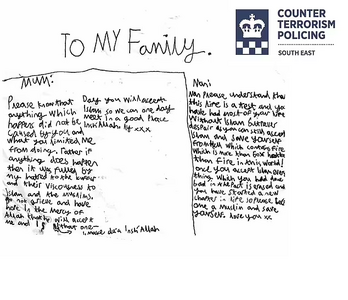 To MY Family.
COUNTER
TERRORISM
POLICING
SOUTH EAST
MUM:
Please know that
anything which
happens did not be
caused by you and
what you limited me
from doing. Rather if
anything does happen
then it was fulled by
my hatred to the
and their viscousness to
Islam and the muslims.
Do not grieve and have
hope in the Mercy of
Allah that he will accept
me and that one
Day you will accept
Islam so we can one day
meet in a good Place
InshAllah by xxx
make dua InshAllah
Nani
Nan Please understand that
this life is a test and you
have had most of your life
without Islam but never
despair as you can still accept
Islam and save yourself
from Hell which contains Fire
which is more than 60x hotter
than Fire in this world!
once you accept Islam every
thing which you had done
bad in the past is erased and
you have started a new
chapter in life so please be
one a muslim and save
yourself. Love you xx